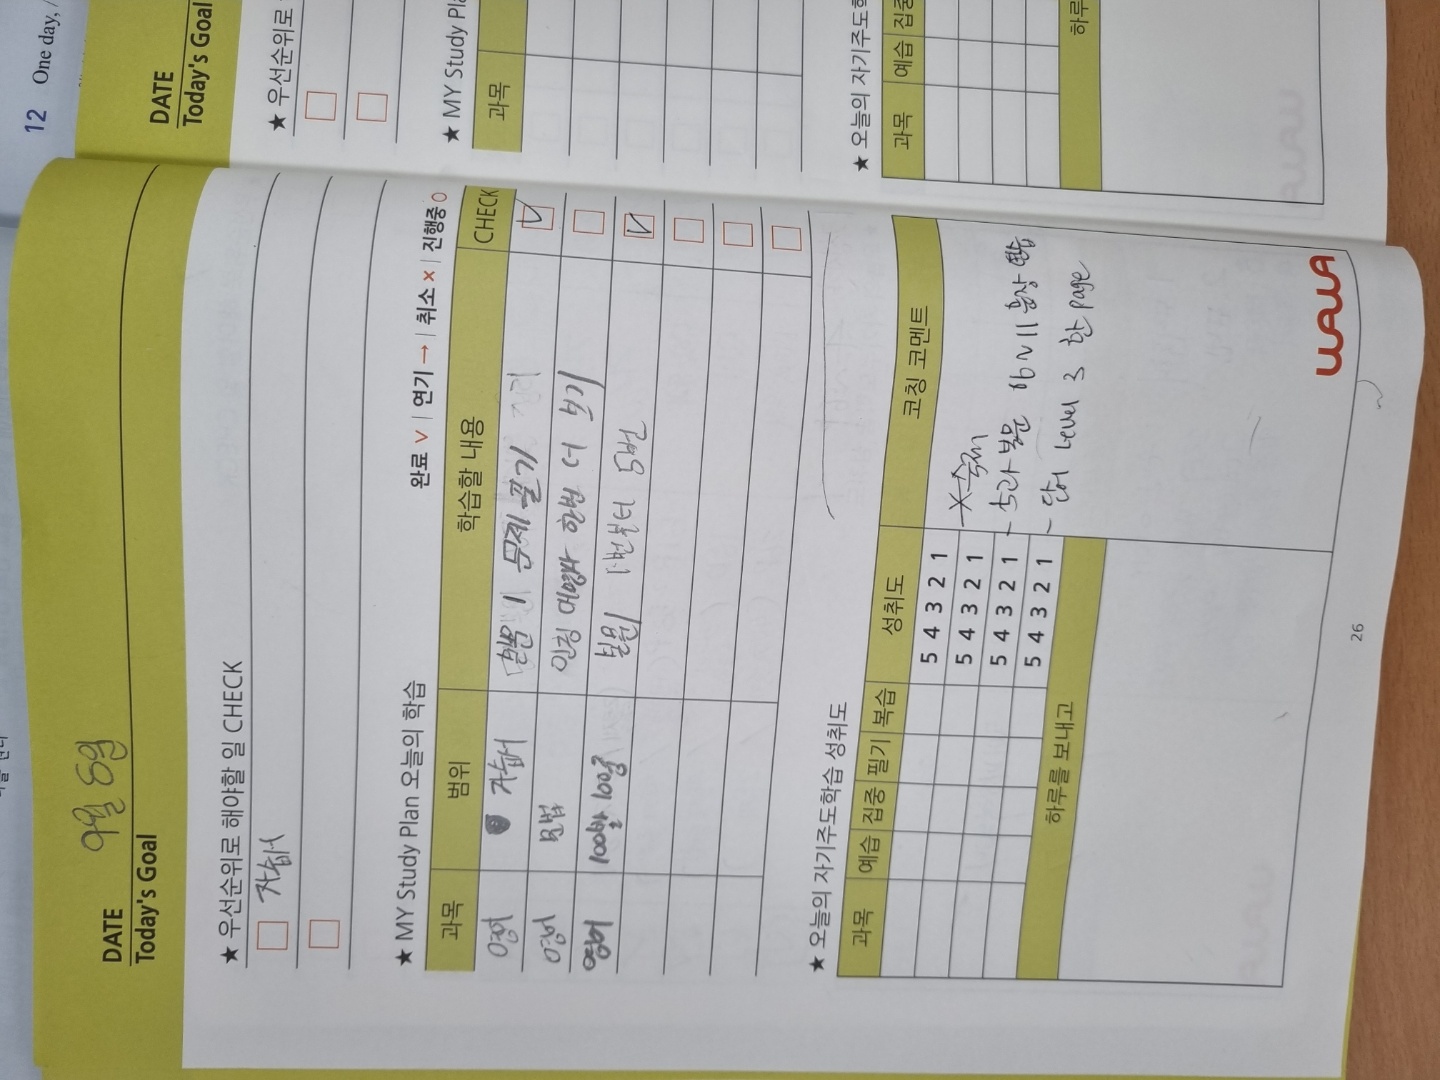 DATE 9월 8일
Today's Goal
★ 우선순위로 해야할 일 CHECK
자습서
★ MY Study Plan 오늘의 학습
완료 v | 연기 → | 취소 × | 진행중 O
과목 범위 학습할 내용 CHECK
영어 자습서 본문 1 문제 풀기
영어 문법 인칭 대명사 한번 더
영어 100발 100중 1번부터
★ 오늘의 자기주도학습 성취도
과목 예습 집중 필기 복습 성취도 코칭 코멘트
5 4 3 2 1
5 4 3 2 1
5 4 3 2 1
5 4 3 2 1
※숙제
- 5과 본문 06~11 통장
- 단어 Level 3 한 page
하루를 보내고
WAWA
26
12 One day,
DATE
Today's Goal
★ 우선순위로
★ MY Study Pla
과목
★ 오늘의 자기주도학
과목 예습 집중
하루